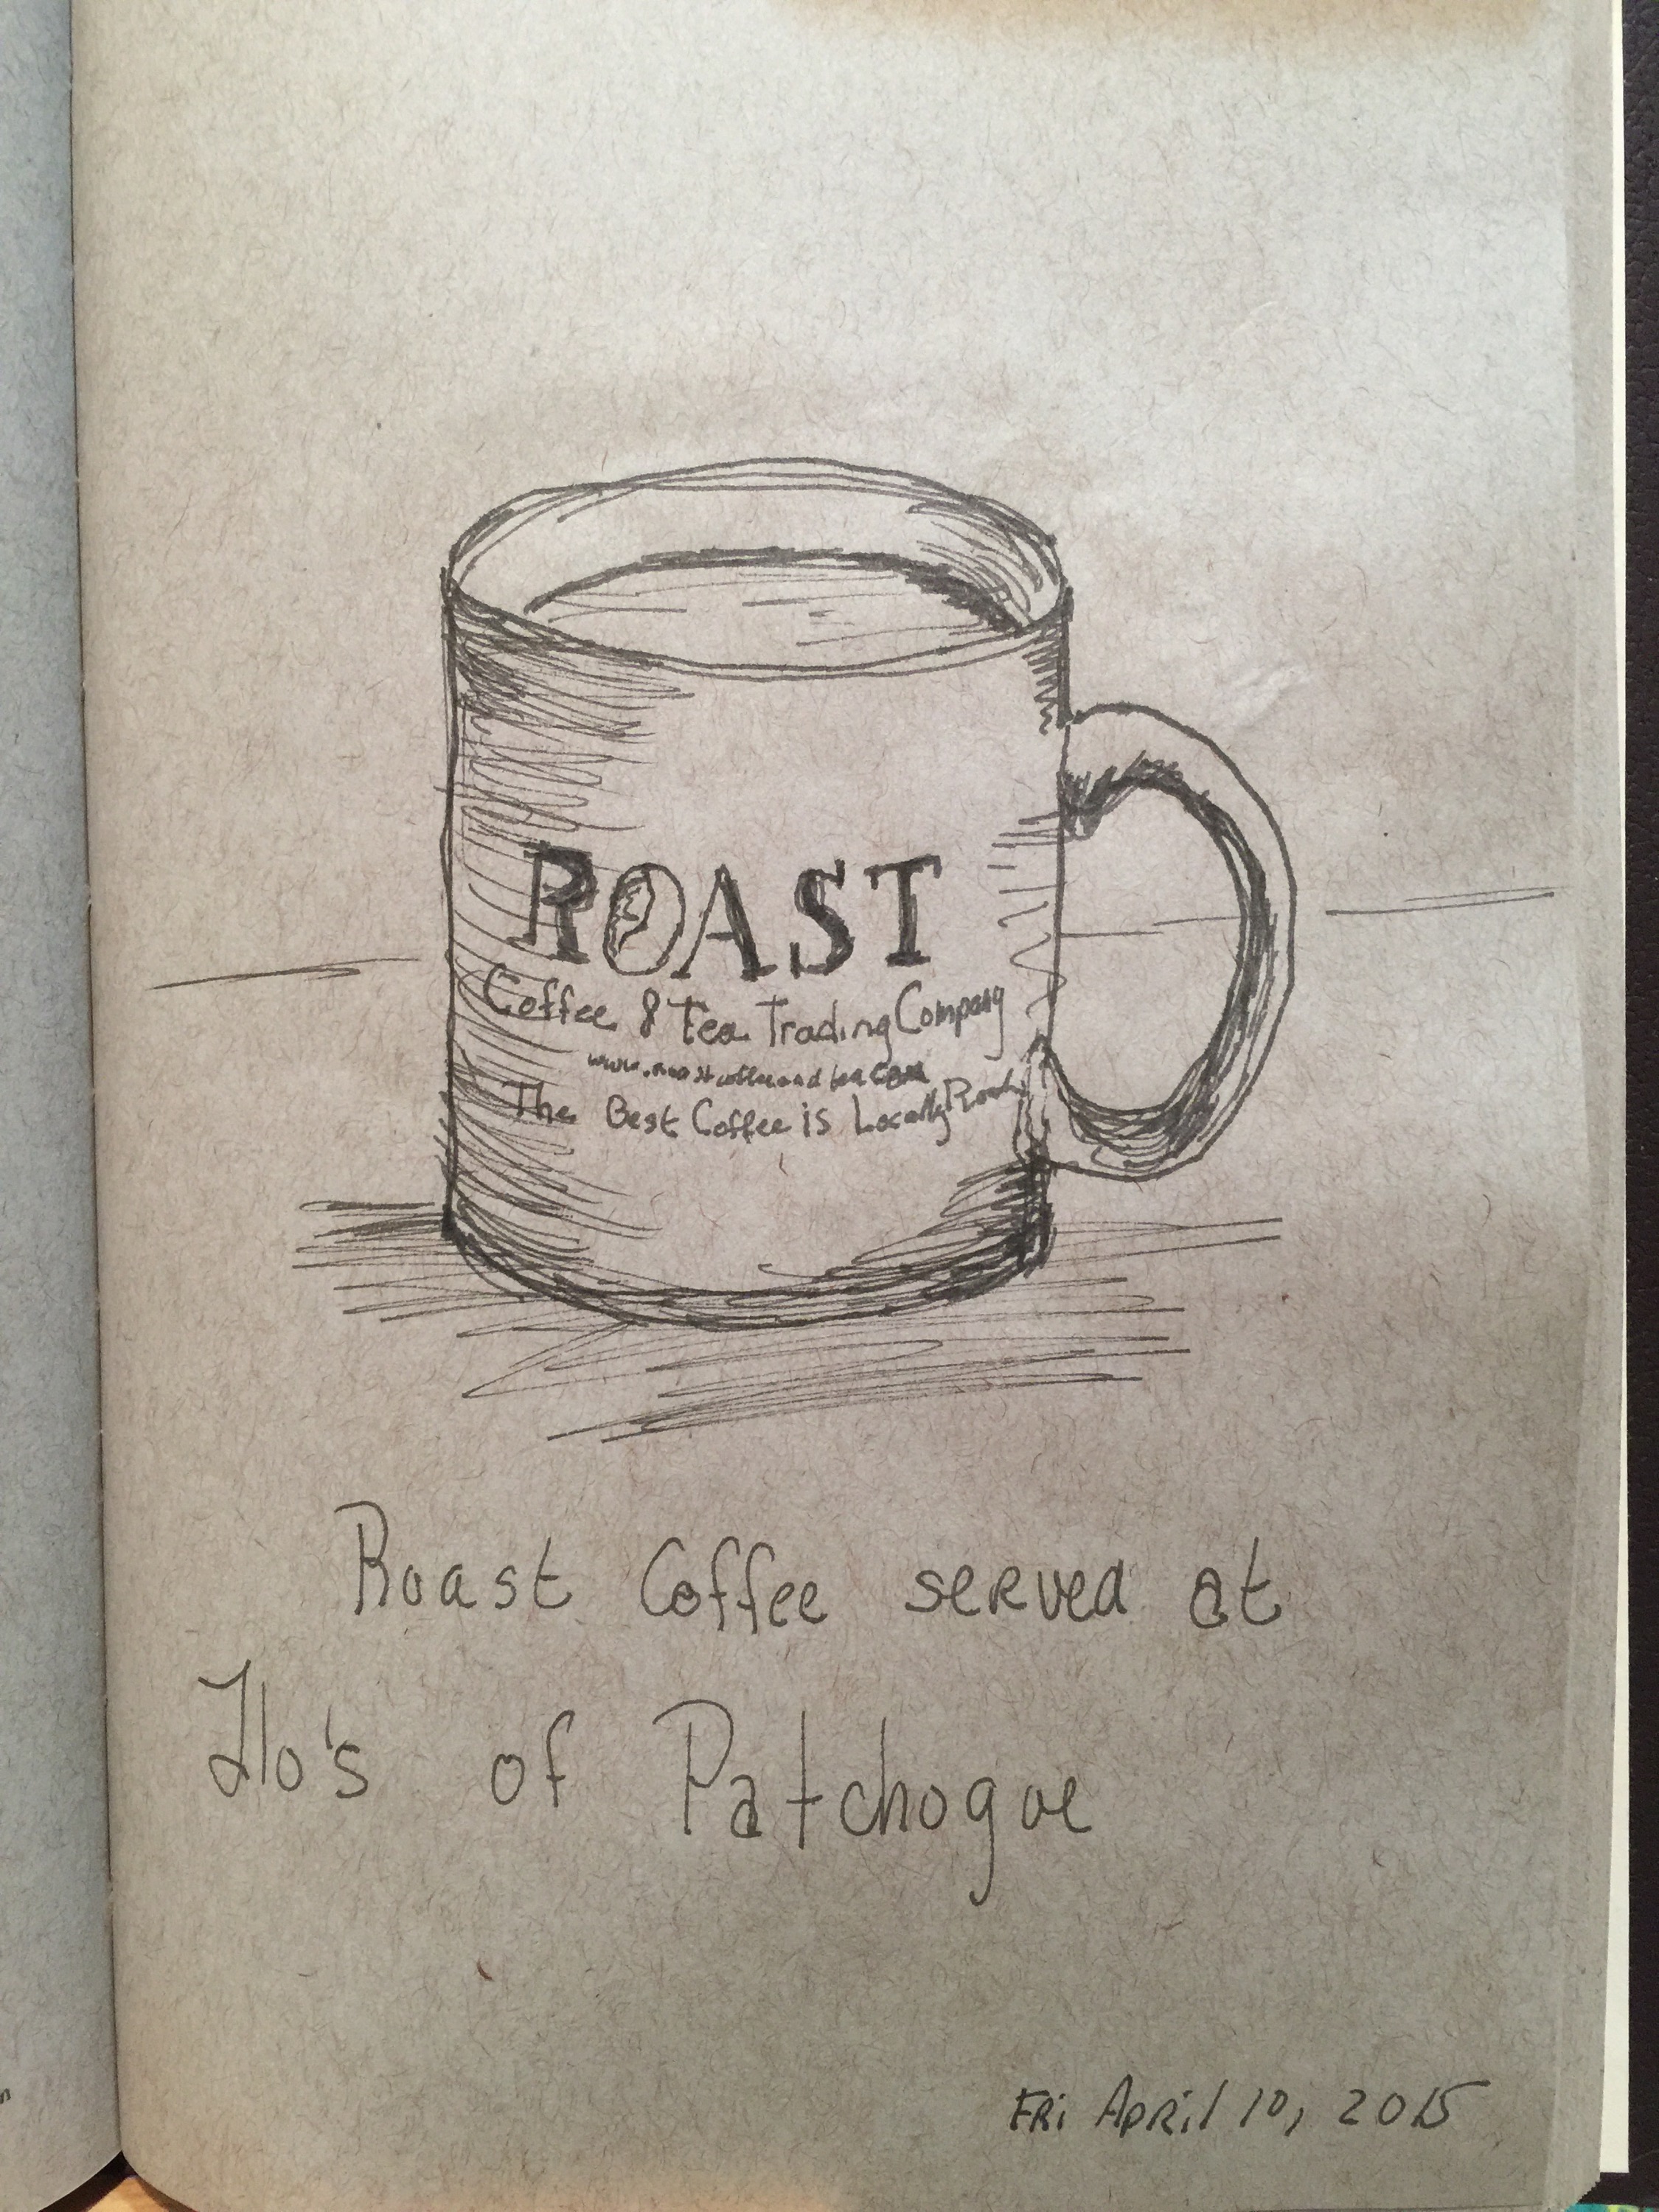 ROAST
Coffee & Tea Trading Company
www.roastcoffeeandtea.com
The Best Coffee is Locally
Roast Coffee served at
Ilo's of Patchogue
Fri April 10, 2015